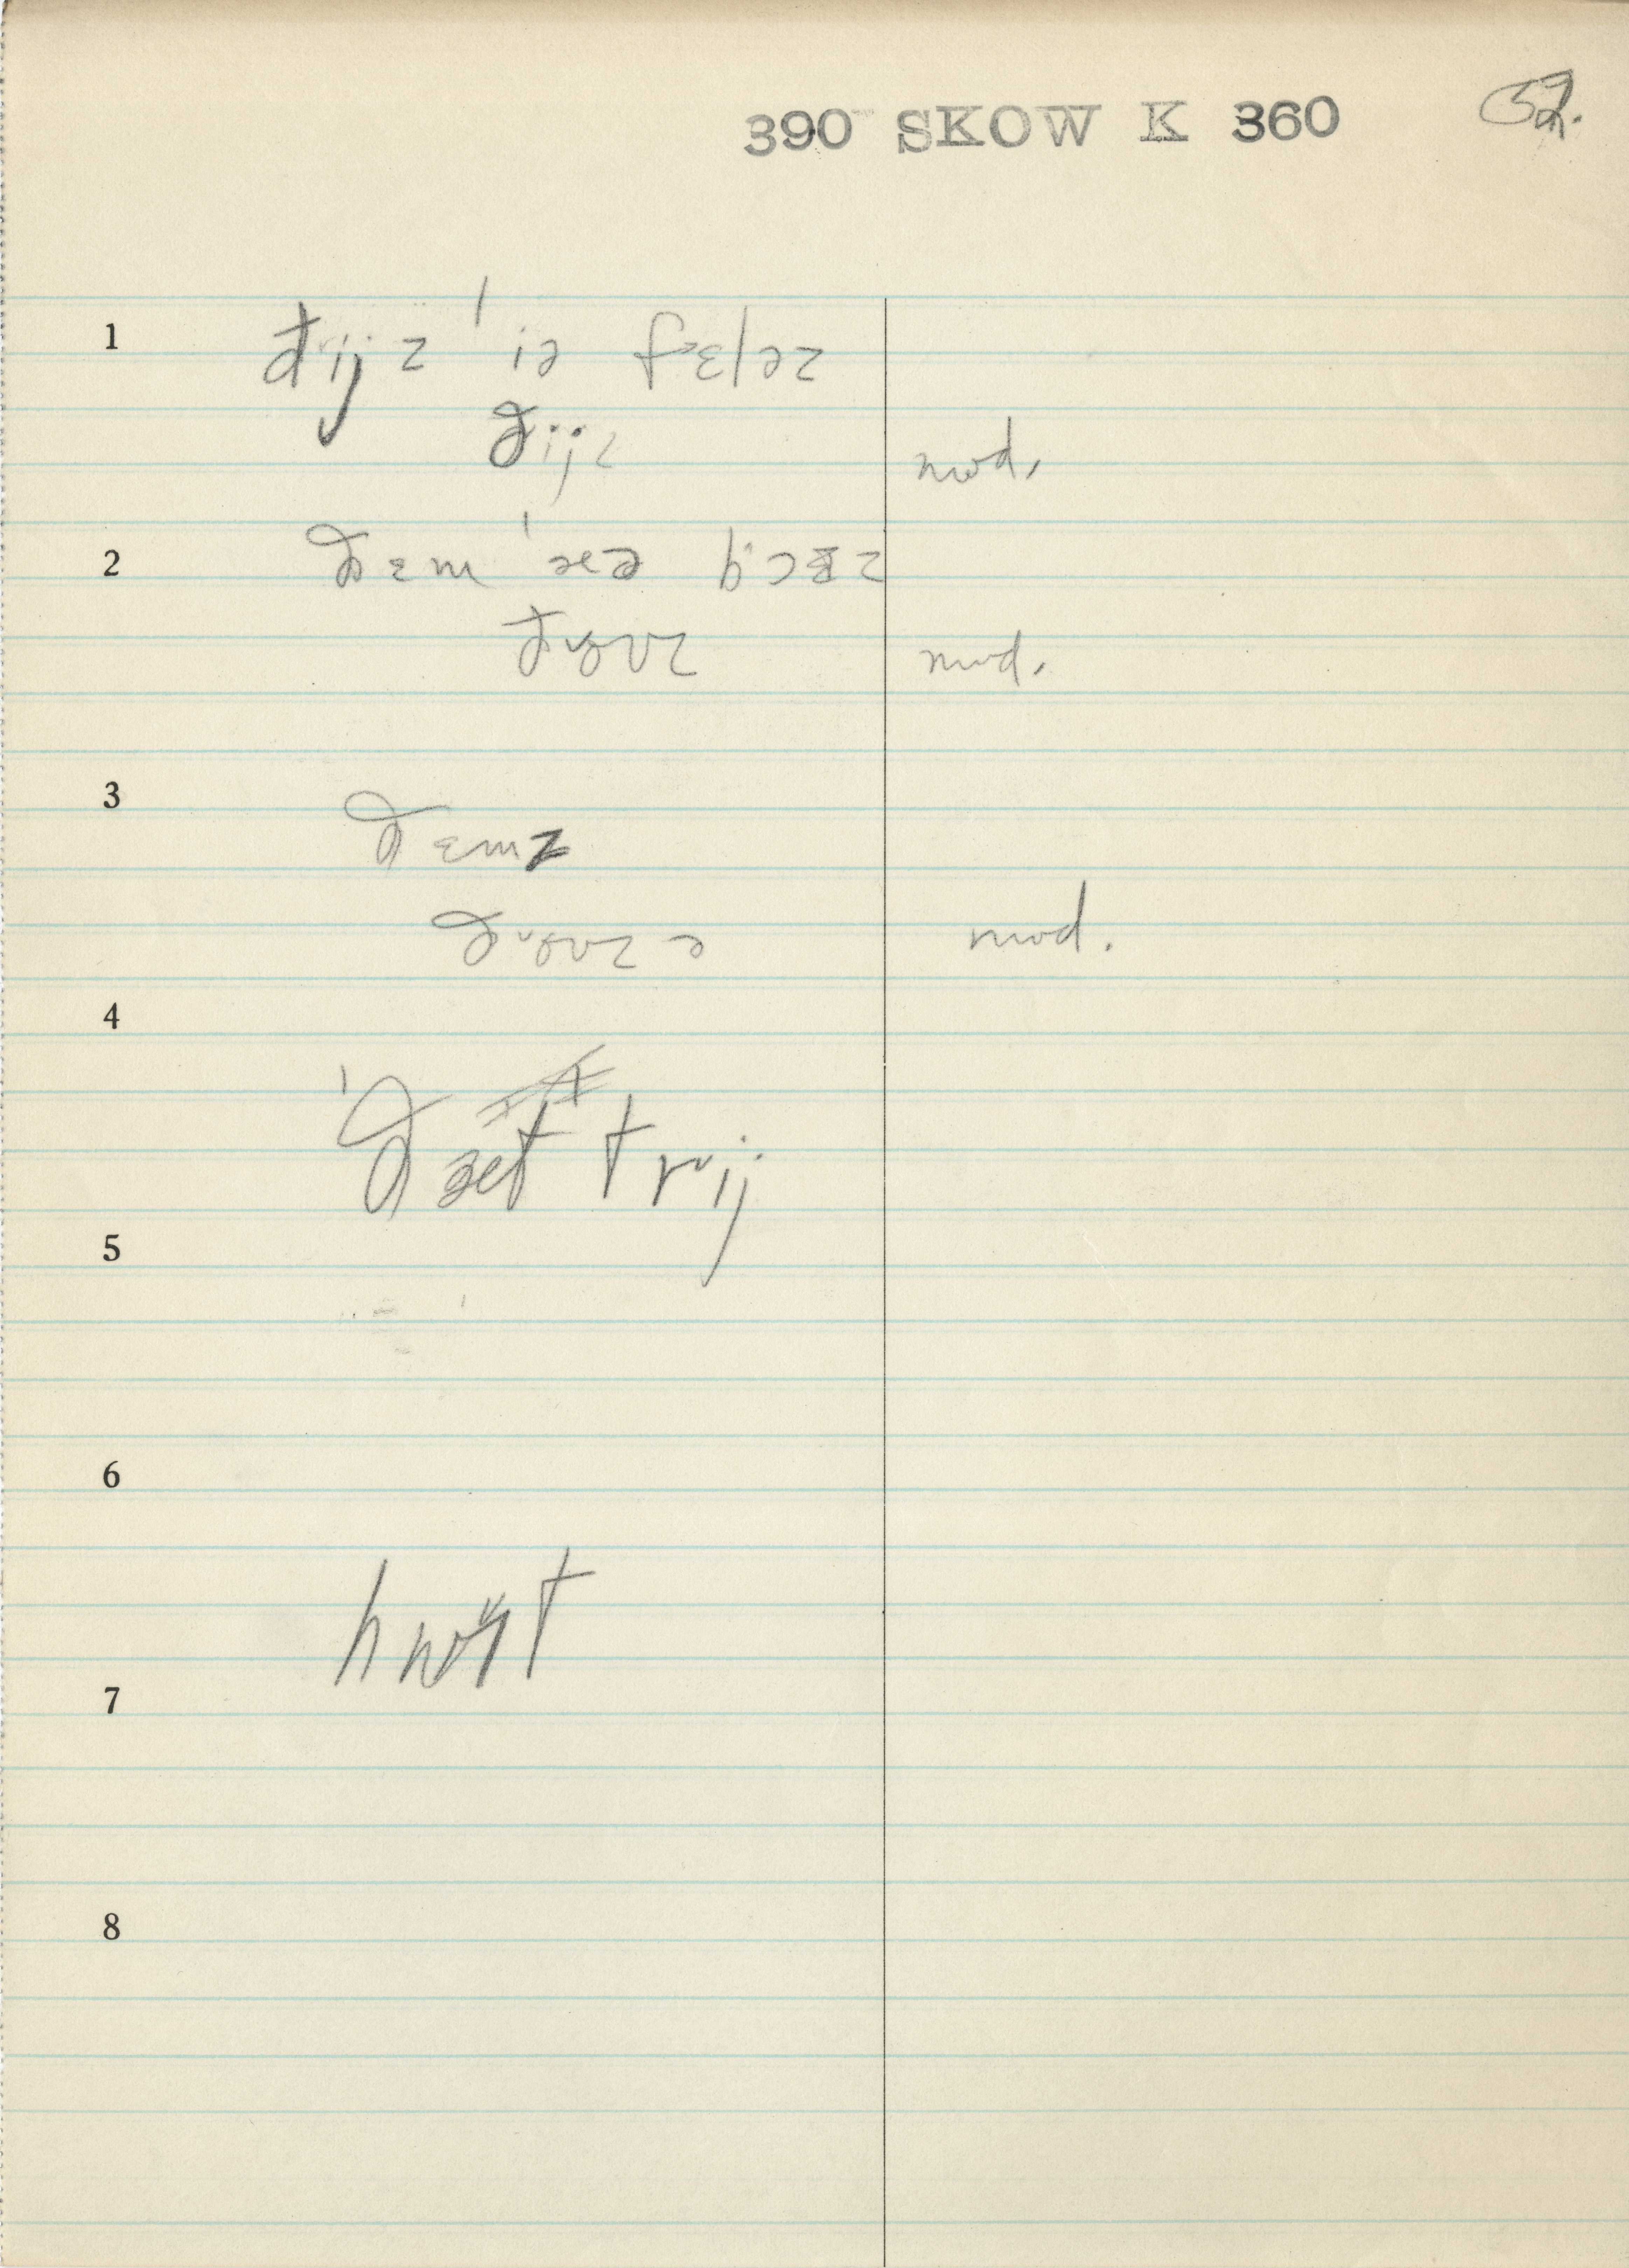 390 SKOW K 360 52.
1 ðijz 'iə fɛləz
ðijz mod.
2 ðɛm 'æə bɔɪz
ðouz mod.
3 ðɛmz
ðouzə mod.
4
'ðæt trij
5
6
7
8